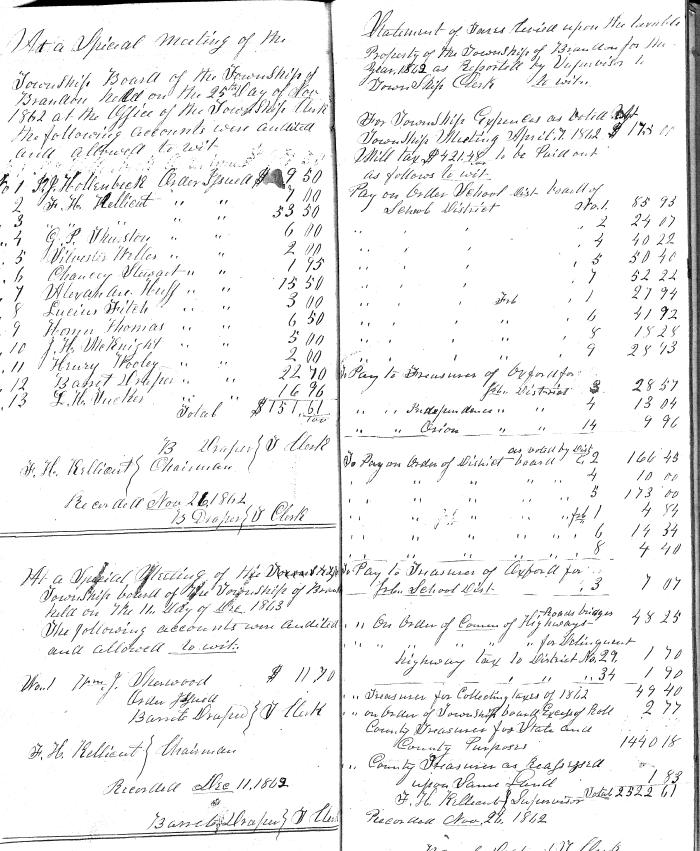 At a Special Meeting of the
Township Board of the Township of
Brandon held on the 25th Day of Nov
1862 at the Office of the Township Clerk
the following accounts were audited
and allowed to wit
No 1 Hollenbeck Order Issued $ 9 50
2 F. H. Kellicut " " 7 00
3 " " 53 50
4 G. P. Thurston " " 6 00
5 Silvester " " 2 00
6 Chancey Stewart " " 1 95
7 Alexander Huff " " 15 50
8 Lucius Fitch " " 3 00
9 Homer Thomas " " 6 50
10 J. H. McKnight " " 5 00
11 Henry Wooley " " 2 00
12 Barret Draper " " 22 70
13 F. H. Tucker " " 16 96
Total $ 151.61
B Draper } T Clerk
F. H. Kellicut } Chairman
Recorded Nov 26 1862
B Draper } T Clerk
At a Special Meeting of the Township
Township board of the Township of Bran
held on the 11 Day of Dec 1863
The following accounts were audited
and allowed to wit.
No. 1 Wm. J. Sherwood $ 11 70
Order Issued
Barrete Draper } T Clerk
F. H. Kellicut } Chairman
Recorded Dec 11. 1862
Barrete Draper } T Clerk
Statement of Taxes levied upon the taxable
Property of the Township of Brandon for the
Year 1862 as Reported by Supervisor to
Township Clerk to wit.
For Township Expences as voted
Township Meeting April 7. 1862 $ 175 00
Mill tax $421.48 to be Paid out
as follows to wit.
Pay on Order School Dist board of
School District No. 1 85 93
" " " 2 24 07
" " " 4 40 22
" " " 5 50 40
" " " 7 52 22
" " " Frl 1 27 94
" " " " 6 41 92
" " " " 8 18 28
" " " " 9 28 43
To Pay to Treasurer of Oxford for
Frl District 3 28 57
" " " Independence " " 4 13 04
" " " Orion " " 14 9 96
as voted by Dist
To Pay on Order of District board 2 166 45
" " " " " 4 10 00
" " " " " 5 173 00
" " " " " frl 1 4 84
" " " " " 6 14 34
" " " " " 8 4 40
To Pay to Treasurer of Oxford for
Frl School Dist " 3 7 07
Roads bridges
" " On Order of Comm of Highways 48 25
" " " " " for Delinquent
highway tax to District No. 29. 1 70
" " " " 34 1 90
" " Treasurer for Collecting taxes of 1862 49 40
" " on Order of Township board Excess of Roll 2 77
County Treasurer for State and
County Purposes 1440 18
" County Treasurer as Reassessed
upon Same Land 1 83
F. H. Kellicut } Supervisor Total 2522 61
Recorded Nov. 26. 1862
T Clerk